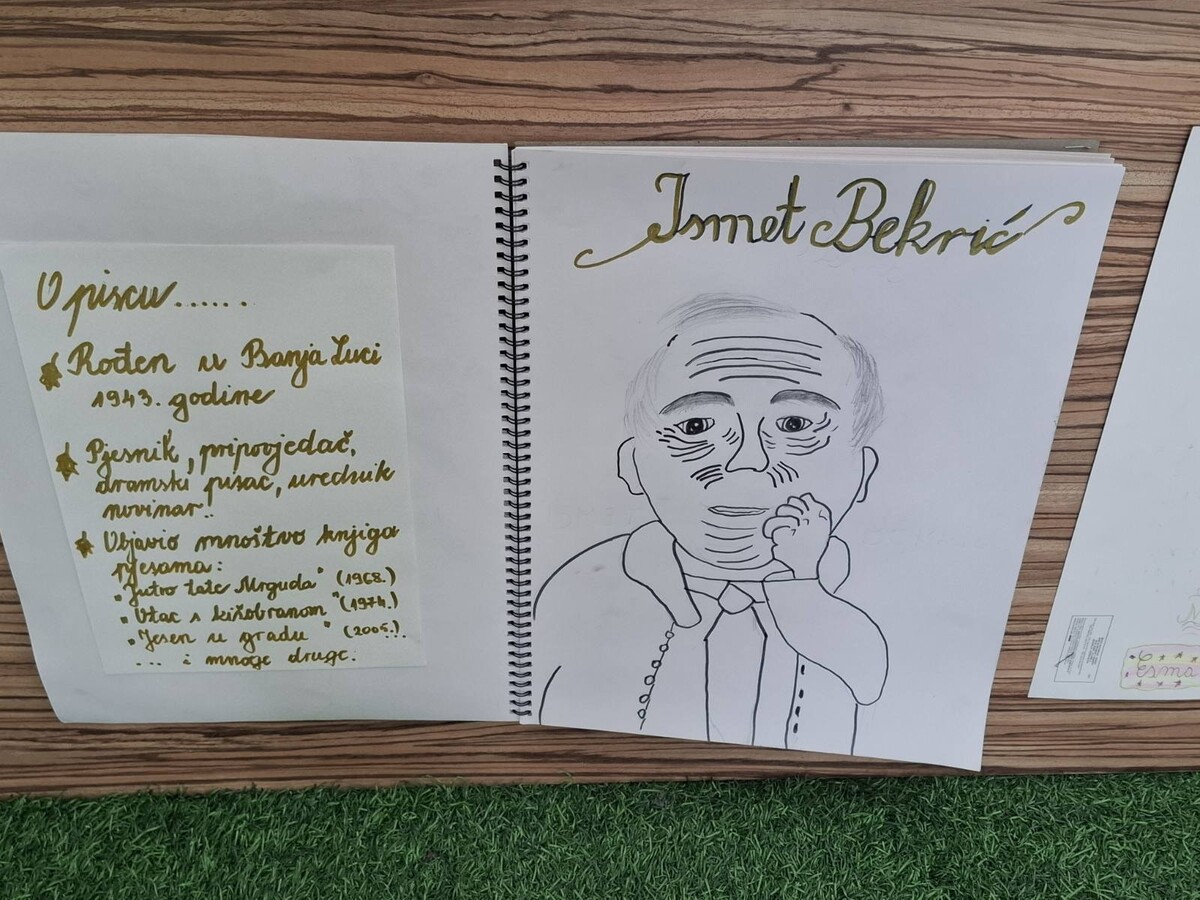 O piscu......
Rođen u Banja Luci
1943. godine
Pjesnik, pripovjedač,
dramski pisac, urednik
novinar..
Objavio mnoštvo knjiga
pjesama:
"Jutro tate Mrguda" (1968.)
"Otac s kišobranom" (1974.)
"Jesen u gradu" (2005.).
... i mnoge druge.
Ismet Bekrić
esma